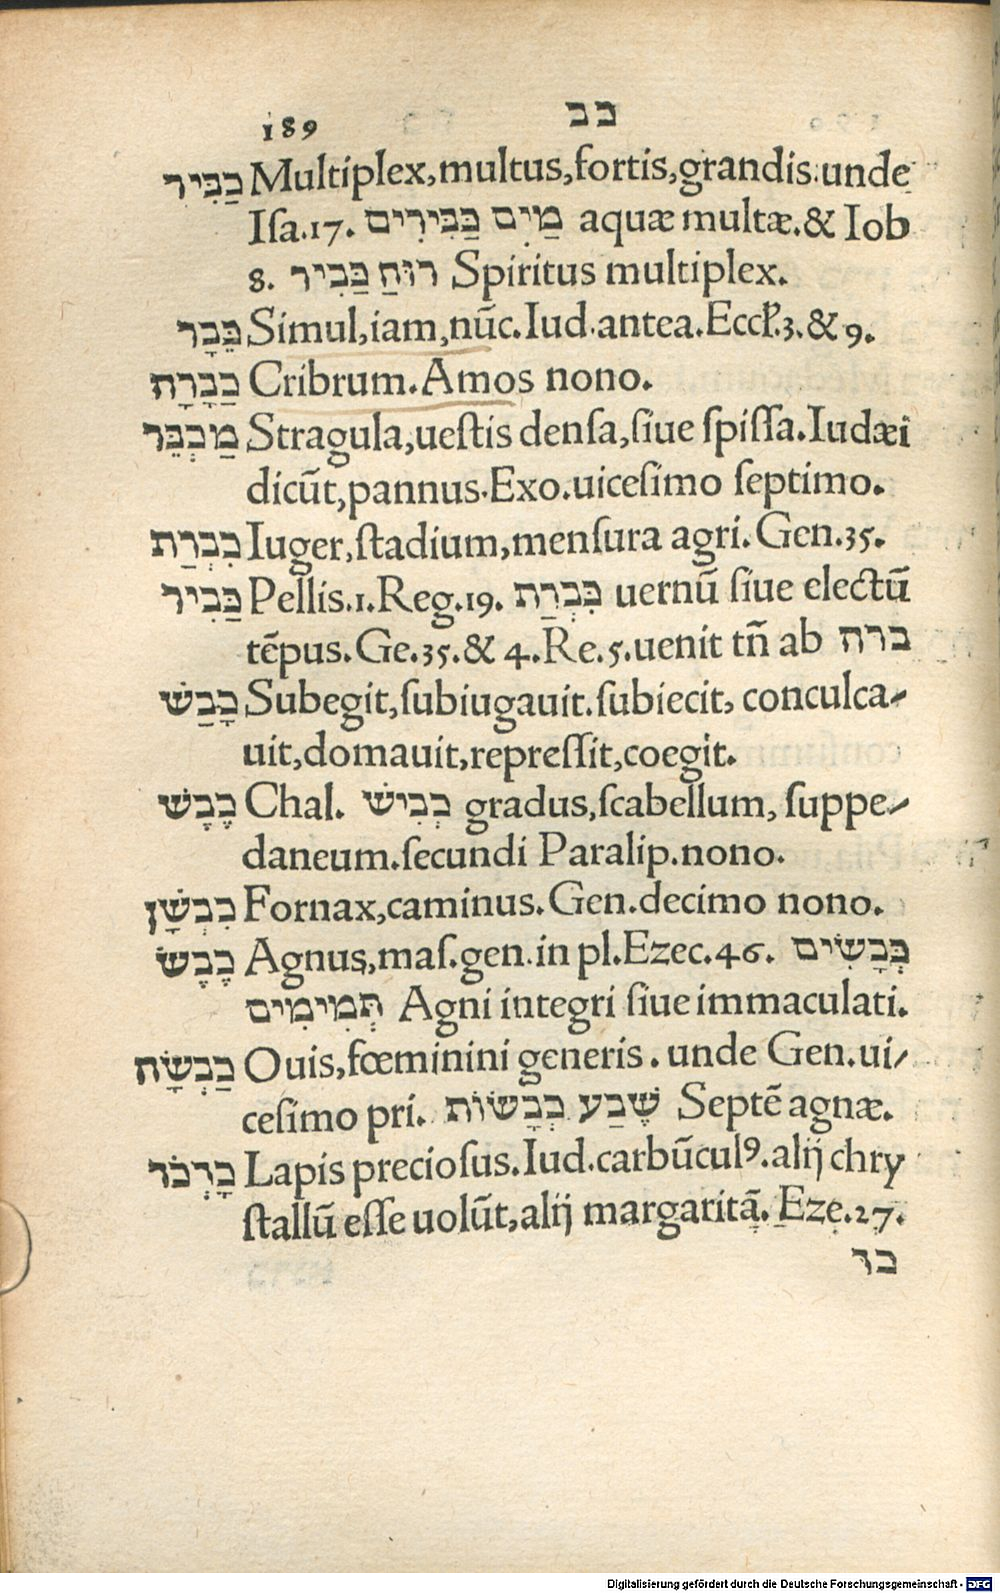 189 כב
כַבִּיר Multiplex, multus, fortis, grandis. unde
Isa.17. מַיִם כַּבִּירִים aquæ multæ. & Iob
8. רוּחַ כַּבִיר Spiritus multiplex.
כְּבָר Simul, iam, nūc. Iud. antea. Eccł. 3. & 9.
כַבָרָה Cribrum. Amos nono.
מַכְבֵּר Stragula, uestis densa, siue spissa. Iudæi
dicūt, pannus. Exo. uicesimo septimo.
כִבְרַת Iuger, stadium, mensura agri. Gen. 35.
כַּבִיר Pellis. 1. Reg. 19. כִּבְרַת uernū siue electū
tēpus. Ge. 35. & 4. Re. 5. uenit tñ ab ברח
כָבַשׁ Subegit, subiugauit. subiecit, conculca-
uit, domauit, repressit, coegit.
כֶבֶשׁ Chal. כְבִישׁ gradus, scabellum, suppe-
daneum. secundi Paralip. nono.
כִבְשָׁן Fornax, caminus. Gen. decimo nono.
כֶבֶשׂ Agnus, mas. gen. in pl. Ezec. 46. כְּבָשִׂים
תְּמִימִים Agni integri siue immaculati.
כַבְשָׂה Ouis, fœminini generis. unde Gen. ui-
cesimo pri. שֶׁבַע כְבָשׂוֹת Septē agnæ.
כָדְכֹד Lapis preciosus. Iud. carbūculꝰ. alij chry
stallū esse uolūt, alij margaritā. Eze. 27.
כד
Digitalisierung gefördert durch die Deutsche Forschungsgemeinschaft - DFG